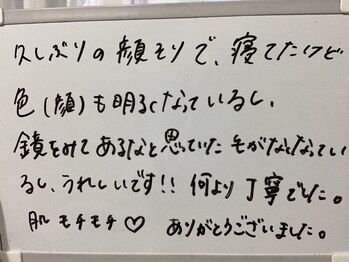 久しぶりの顔そりで、寝てたけど
色(顔)も明るくなっているし、
鏡をみてあるなと思っていた毛がなくなってい
るし、うれしいです!! 何より丁寧でした。
肌モチモチ♡ ありがとうございました。